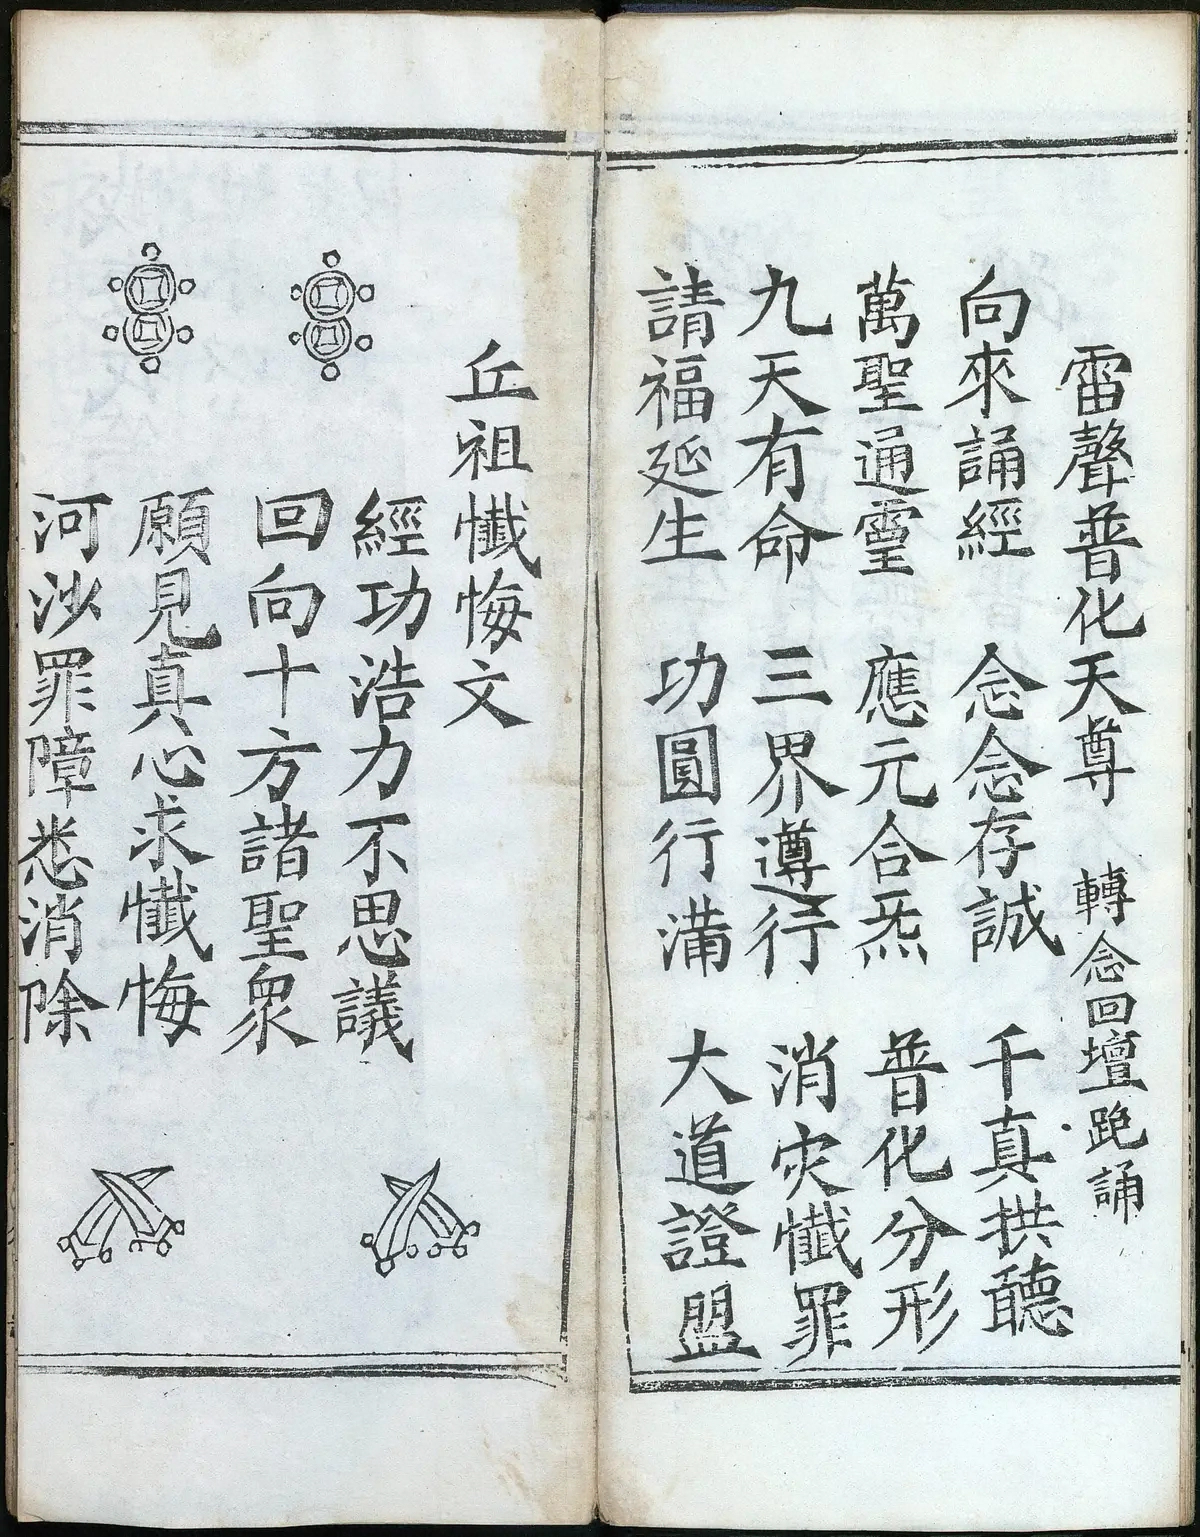 雷聲普化天尊 轉念回壇跪誦
向來誦經 念念存誠 千真拱聽
萬聖通靈 應元合炁 普化分形
九天有命 三界遵行 消灾懺罪
請福延生 功圓行滿 大道證盟
丘祖懺悔文
經功浩力不思議
回向十方諸聖眾
願見真心求懺悔
河沙罪障悉消除